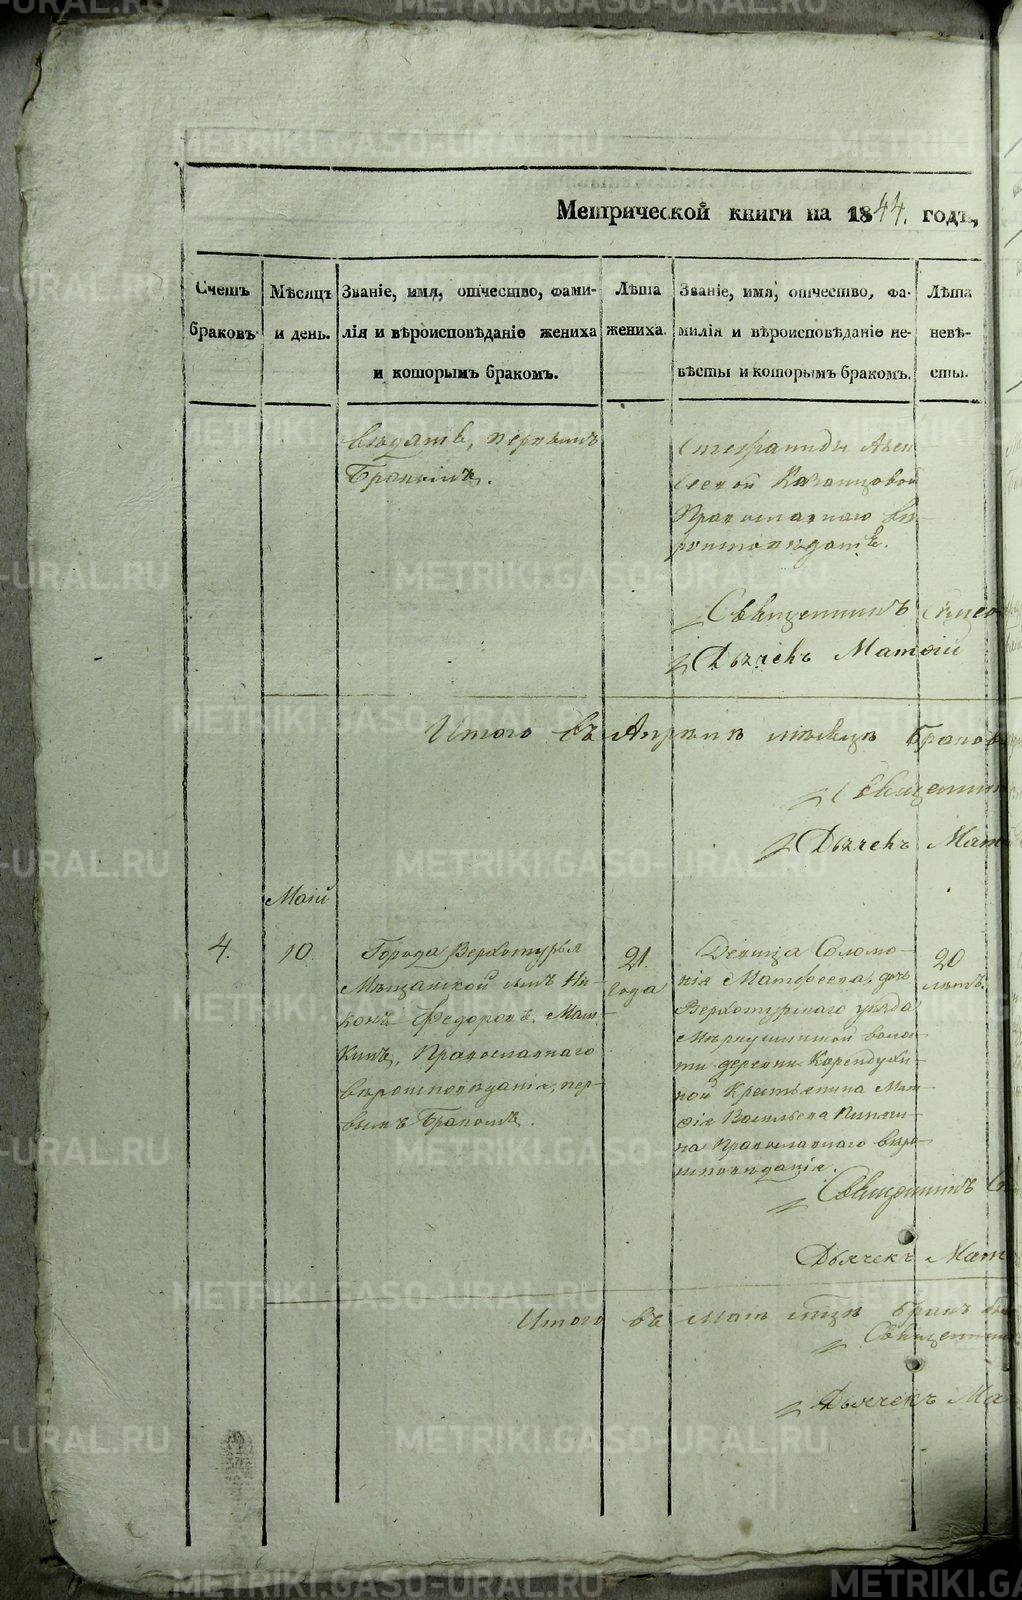 Метрической книги на 1844. годъ,
Счетъ браковъ.
Мѣсяцъ и день.
Званіе, имя, отчество, фами-
лія и вѣроисповѣданіе жениха
и которымъ бракомъ.
Лѣта
жениха.
Званіе, имя, отчество, фа-
милія и вѣроисповѣданіе не-
вѣсты и которымъ бракомъ.
Лѣта
невѣ-
сты.
первымъ
Бракомъ.
Казанцовой
Православнаго вѣ-
роисповѣданія.
Священникъ
Дьячекъ Матѳій
Итого въ Апрѣлѣ мѣсяцѣ браков
Священни
Дьячекъ Мат
Маій
4.
10.
Города Верхотурья
Мѣщанской сынъ Ни-
конъ Федоровъ
Православнаго
вѣроисповѣданія, пер-
вымъ Бракомъ.
21.
года
Девица Соломо-
нія Матфеева, дочь
Верхотурскаго уѣзда
Меркушинской воло-
сти деревни
Крестьянина Мат-
ѳія Васильева
Православнаго вѣро-
исповѣданія.
20
лѣтъ.
Священникъ
Дьячекъ Мат
Итого въ Маѣ мцѣ бракъ
Священни
Дьячекъ Ма
METRIKI.GASO-URAL.RU